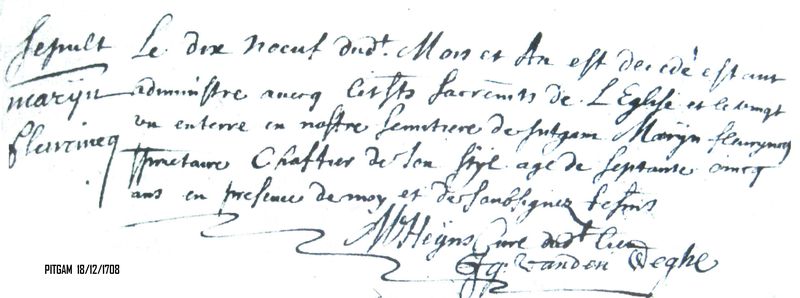 sepult
marijn
fleurincq
Le dix noeuf dudt. Mois et An est decedé estant
administre avecq les sts sacremts de L'Eglise et le vingt
un enterre en nostre semitiere de pitgam Marijn fleuryncq
Chastier de son stijl age de septante cincq
ans en presence de moy et des soubsignez tesms
Heyns Cure dudt lieu
vanden Weghe
PITGAM 18/12/1708